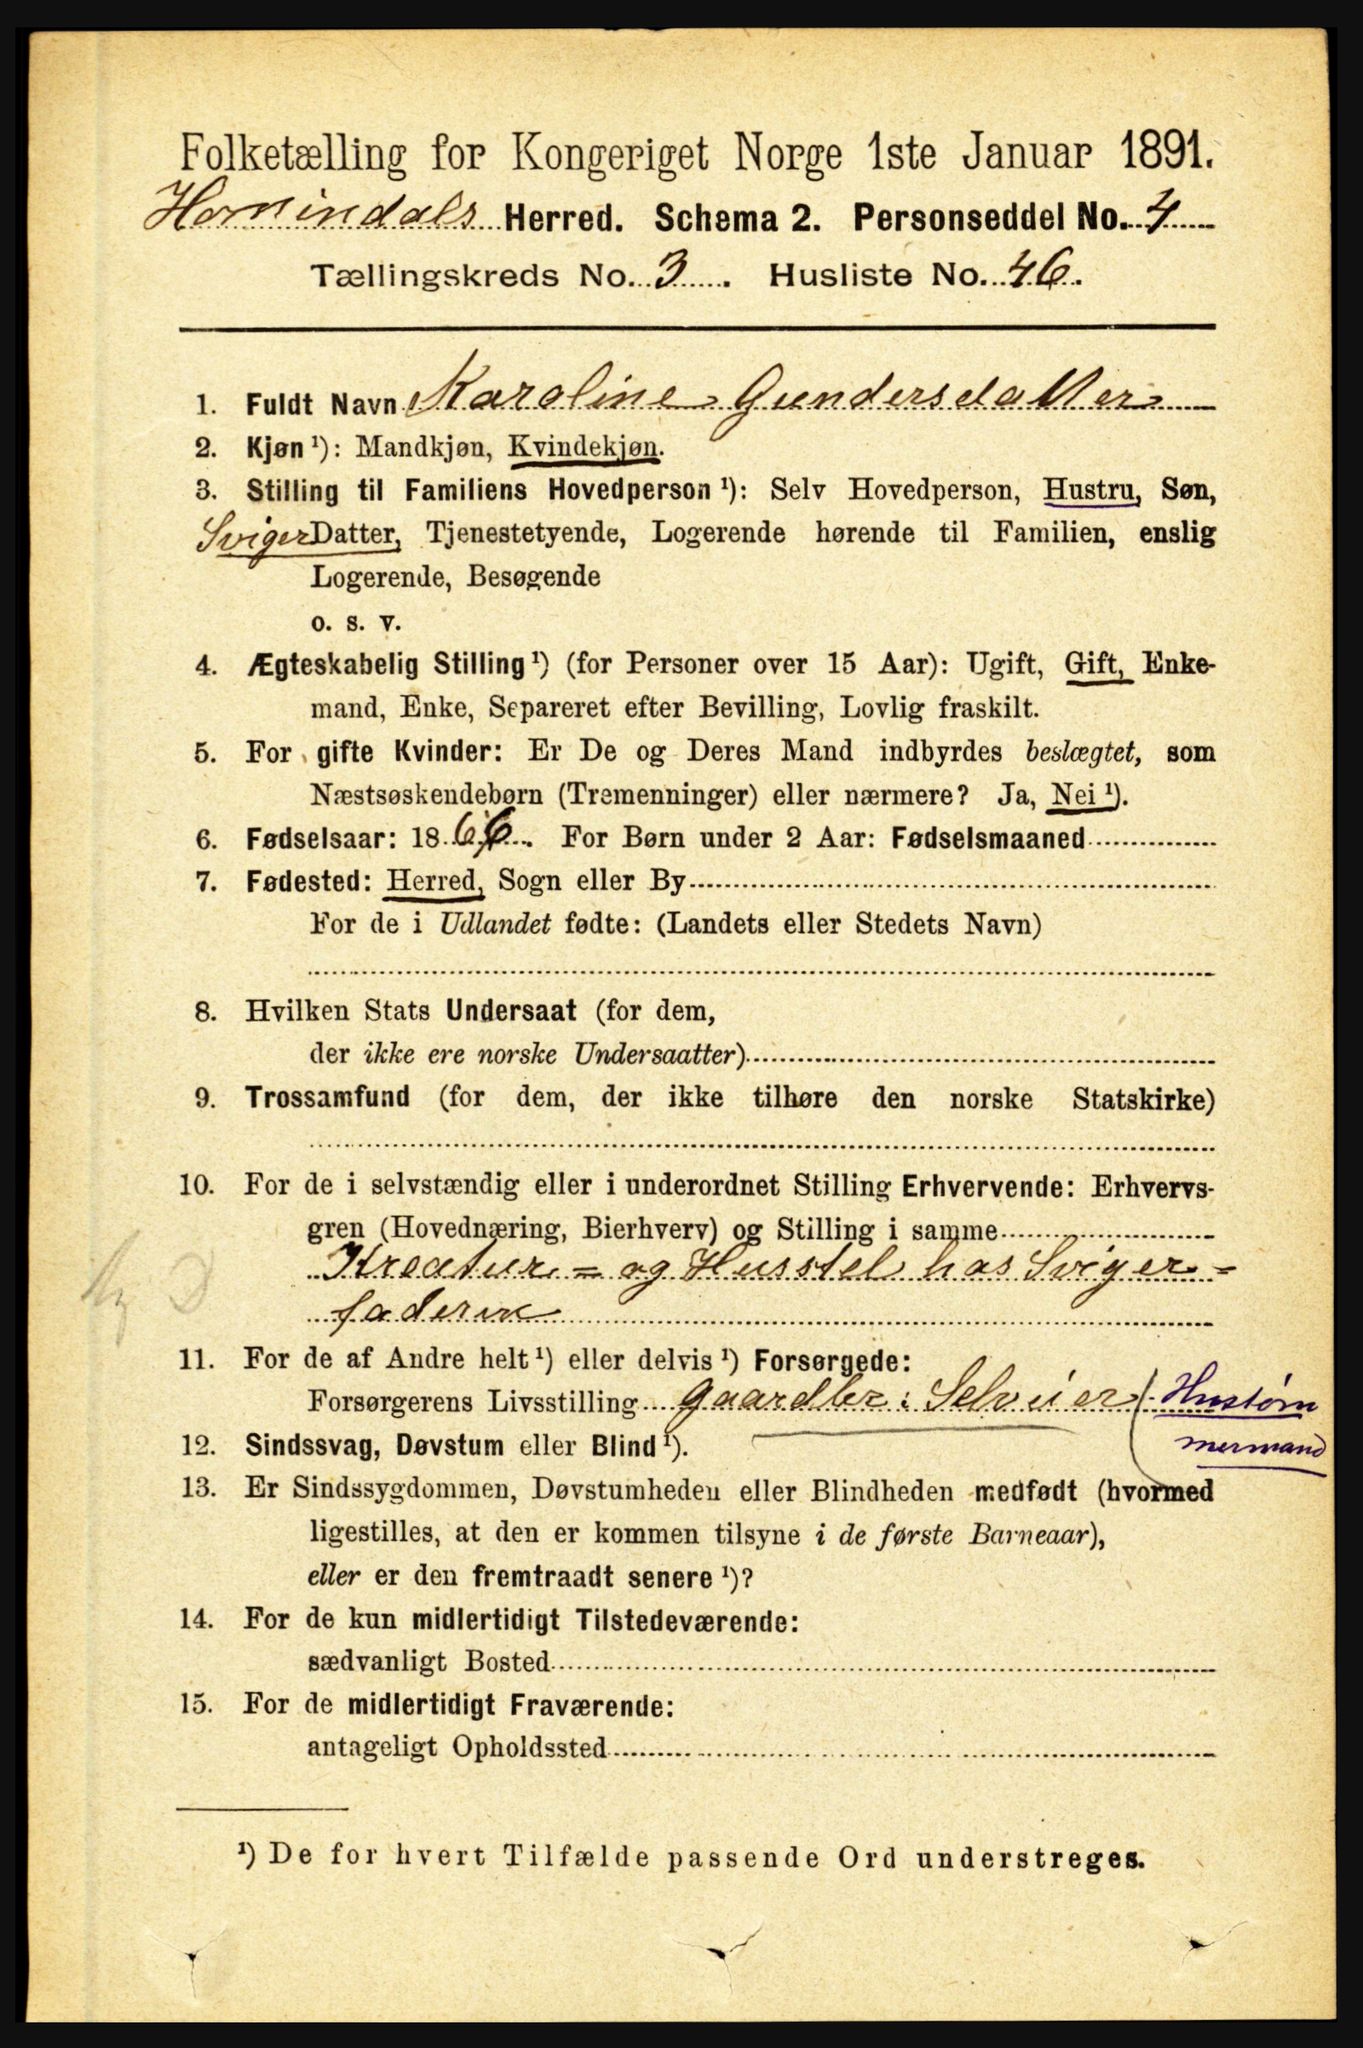 Folketælling for Kongeriget Norge 1ste Januar 1891.
Hornindals Herred. Schema 2. Personseddel No. 4
Tællingskreds No. 3. Husliste No. 46.
1. Fuldt Navn Karoline Gundersdatter
2. Kjøn ¹): Mandkjøn, Kvindekjøn.
3. Stilling til Familiens Hovedperson ¹): Selv Hovedperson, Hustru, Søn,
Sviger Datter, Tjenestetyende, Logerende hørende til Familien, enslig
Logerende, Besøgende
o. s. v.
4. Ægteskabelig Stilling ¹) (for Personer over 15 Aar): Ugift, Gift, Enke-
mand, Enke, Separeret efter Bevilling, Lovlig fraskilt.
5. For gifte Kvinder: Er De og Deres Mand indbyrdes beslægtet, som
Næstsøskendebørn (Tremenninger) eller nærmere? Ja, Nei ¹).
6. Fødselsaar: 1866. For Børn under 2 Aar: Fødselsmaaned
7. Fødested: Herred, Sogn eller By
For de i Udlandet fødte: (Landets eller Stedets Navn)
8. Hvilken Stats Undersaat (for dem,
der ikke ere norske Undersaatter)
9. Trossamfund (for dem, der ikke tilhøre den norske Statskirke)
10. For de i selvstændig eller i underordnet Stilling Erhvervende: Erhvervs-
gren (Hovednæring, Bierhverv) og Stilling i samme
Kreatur= og Husstel hos Sviger=
faderen
11. For de af Andre helt ¹) eller delvis ¹) Forsørgede:
Forsørgerens Livsstilling gaardbr: Selveier (Hustøm
mermand
12. Sindssvag, Døvstum eller Blind ¹).
13. Er Sindssygdommen, Døvstumheden eller Blindheden medfødt (hvormed
ligestilles, at den er kommen tilsyne i de første Barneaar),
eller er den fremtraadt senere ¹)?
14. For de kun midlertidigt Tilstedeværende:
sædvanligt Bosted
15. For de midlertidigt Fraværende:
antageligt Opholdssted
¹) De for hvert Tilfælde passende Ord understreges.